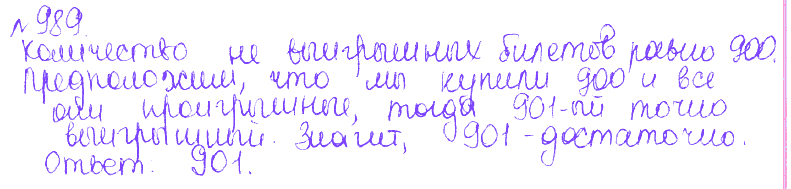 № 989.
Количество не выигрышных билетов равно 900.
Предположим, что мы купили 900 и все
они проигрышные, тогда 901-ый точно
выигрышный. Значит, 901 - достаточно.
Ответ. 901.